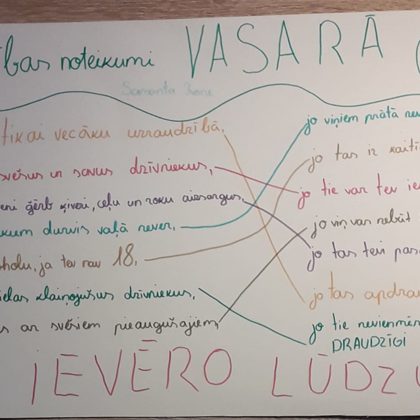 bas noteikumi VASARĀ
Samanta
tikai vecāku uzraudzībā,
svešus un savus dzīvniekus,
ķiveri, ceļu un roku aizsargus,
durvis vaļā never,
ja tev nav 18,
klaiņojušus dzīvniekus,
ar svešiem pieaugušajiem,
jo viņiem prātā
jo tas ir kaitī
jo tie var tev
jo viņ var nebūt
jo tas tevi
jo tas apdrau
jo tie nevienmēr
DRAUDZĪGI
IEVĒRO LŪDZU